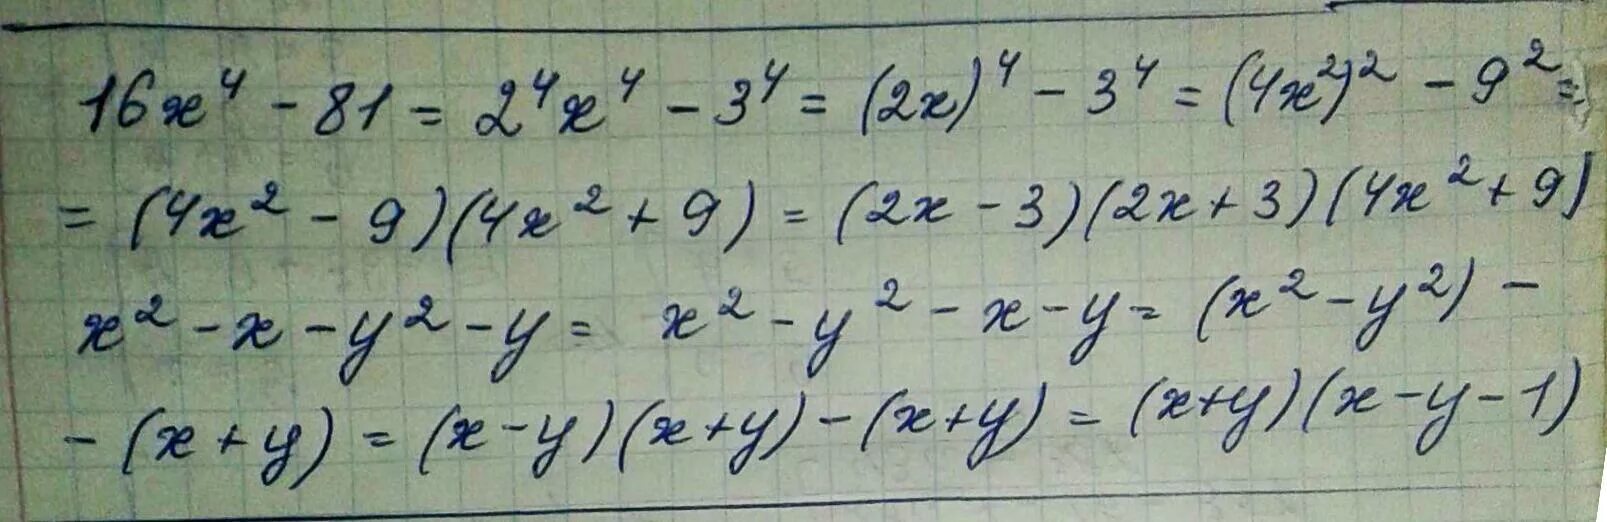 16x⁴ - 81 = 2⁴x⁴ - 3⁴ = (2x)⁴ - 3⁴ = (4x²)² - 9² =
= (4x² - 9)(4x² + 9) = (2x - 3)(2x + 3)(4x² + 9)
x² - x - y² - y = x² - y² - x - y = (x² - y²) -
- (x + y) = (x - y)(x + y) - (x + y) = (x + y)(x - y - 1)